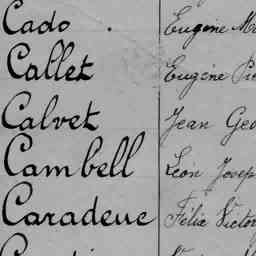 Cado . Eugène
Callet Eugène
Calvet Jean
Cambell Léon
Caradeuc Félix Victor